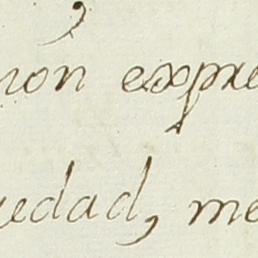 non expre
uedad, me